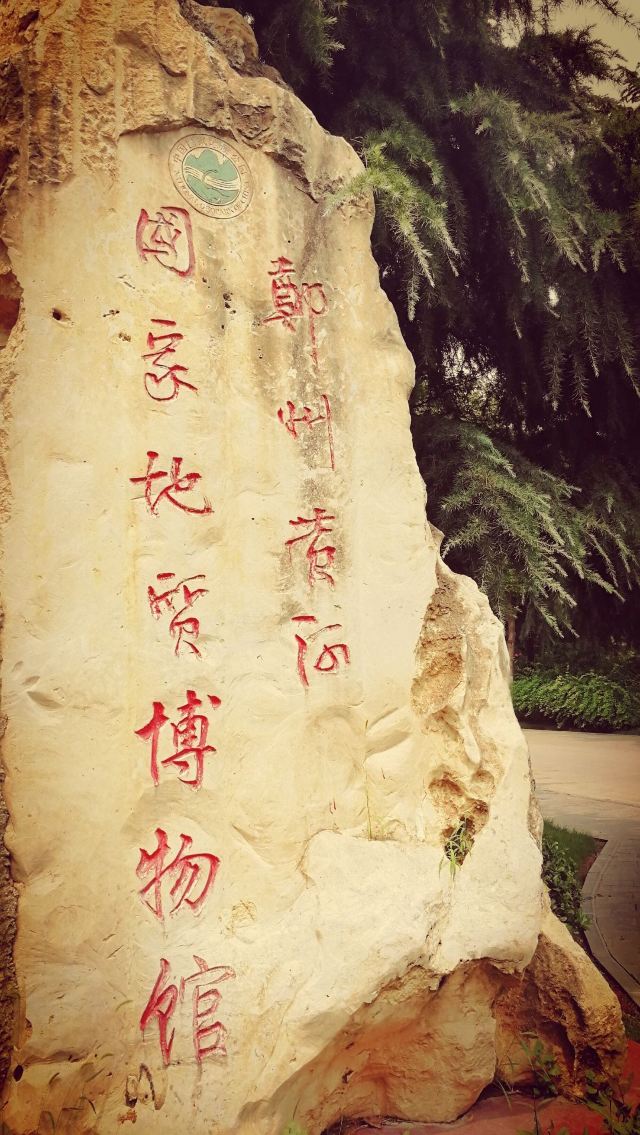 鄭州黄河
国家地质博物馆